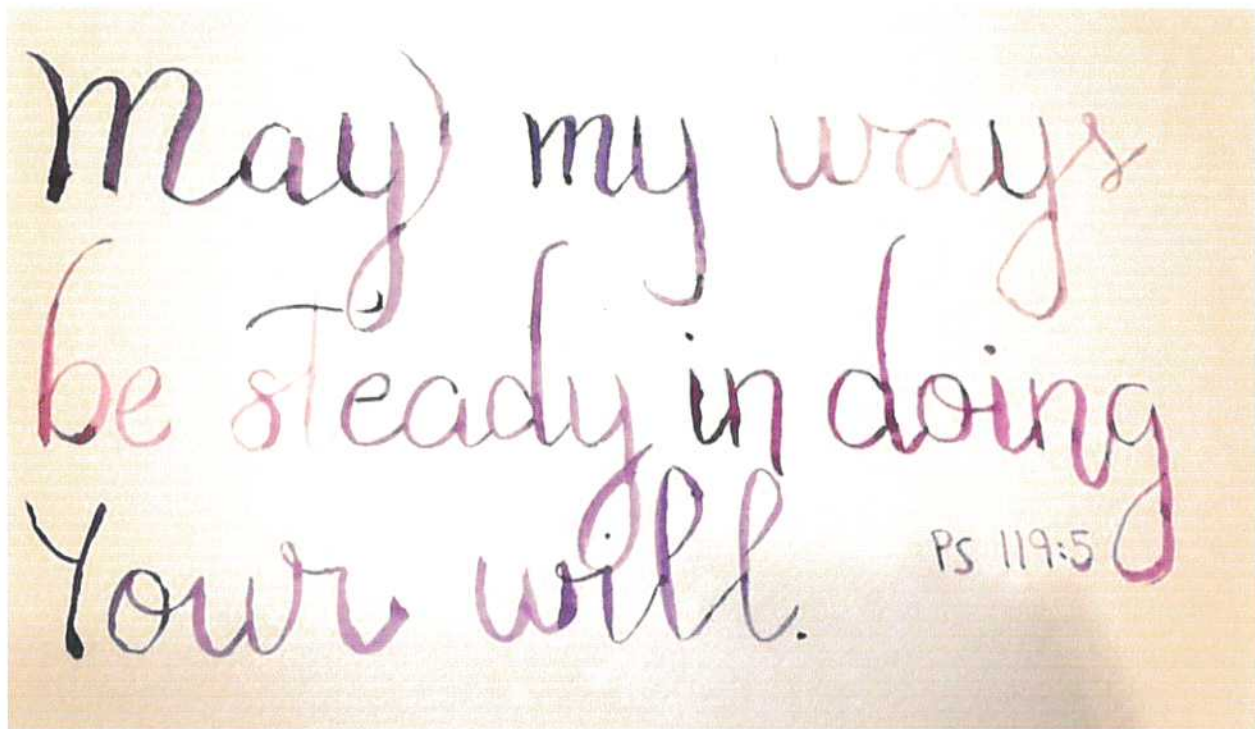 May my ways
be steady in doing
Your will.
Ps 119:5